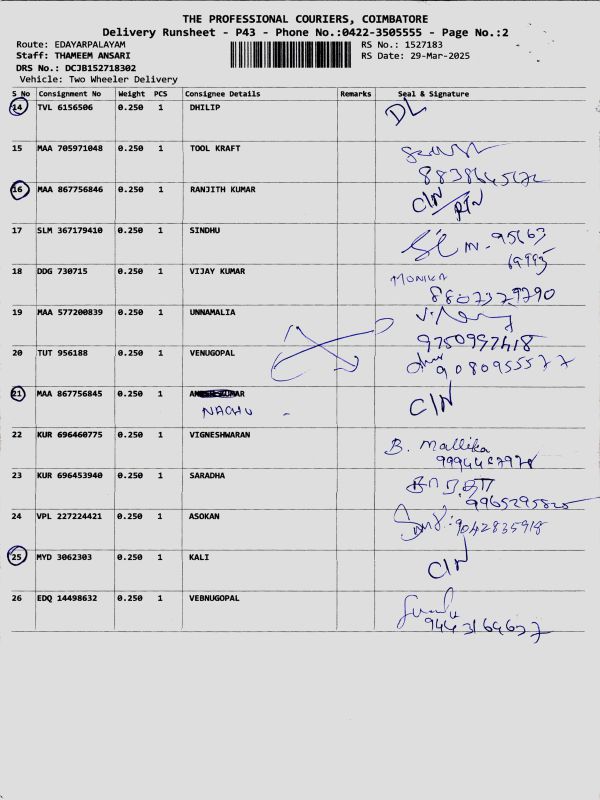 THE PROFESSIONAL COURIERS, COIMBATORE
Delivery Runsheet - P43 - Phone No.:0422-3505555 - Page No.:2
Route: EDAYARPALAYAM RS No.: 1527183
Staff: THAMEEM ANSARI RS Date: 29-Mar-2025
DRS No.: DCJB152718302
Vehicle: Two Wheeler Delivery
S No Consignment No Weight PCS Consignee Details Remarks Seal & Signature
14 TVL 6156506 0.250 1 DHILIP DL
15 MAA 705971048 0.250 1 TOOL KRAFT
16 MAA 867756846 0.250 1 RANJITH KUMAR C/N
17 SLM 367179410 0.250 1 SINDHU
18 DDG 730715 0.250 1 VIJAY KUMAR MONIKA
8807379790
19 MAA 577200839 0.250 1 UNNAMALIA
9750997418
20 TUT 956188 0.250 1 VENUGOPAL
9080955577
21 MAA 867756845 0.250 1 C/N
NACHU -
22 KUR 696460775 0.250 1 VIGNESHWARAN B. Mallika
23 KUR 696453940 0.250 1 SARADHA
9965295825
24 VPL 227224421 0.250 1 ASOKAN 9042835918
25 MYD 3062303 0.250 1 KALI C/N
26 EDQ 14498632 0.250 1 VEBNUGOPAL